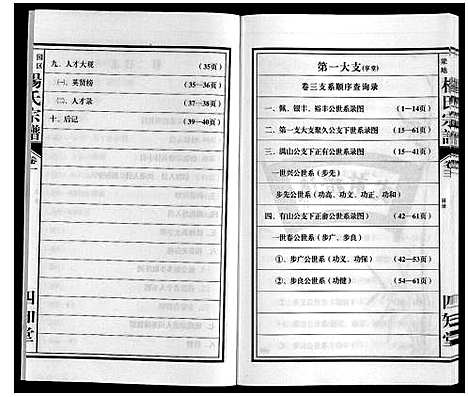 九、人才大观 （35页）
㈠、英贤榜 （35—36页）
㈡、人才录 （37—39页）
十、后记 （39—40页）
园区
杨氏宗谱
卷一
四知堂
第一大支(享堂)
卷三支系顺序查询录
一、佩、银丰、裕丰公世系录图 （1—14页）
二、第一支大支聚久公支下世系录图 （15—61页）
三、满山公支下正有公世系录图 （15—41页）
一世兴公世系（步先）
步先公世系（功高、功文、功正、功和）
四、有山公支下正俞公世系录图） （42—61页）
一世春公世系（步广、步良）
①、步广公世系（功义、功保） （42—53页）
②、步良公世系（功健） （54—61页）
杨氏宗谱
卷三
四知堂